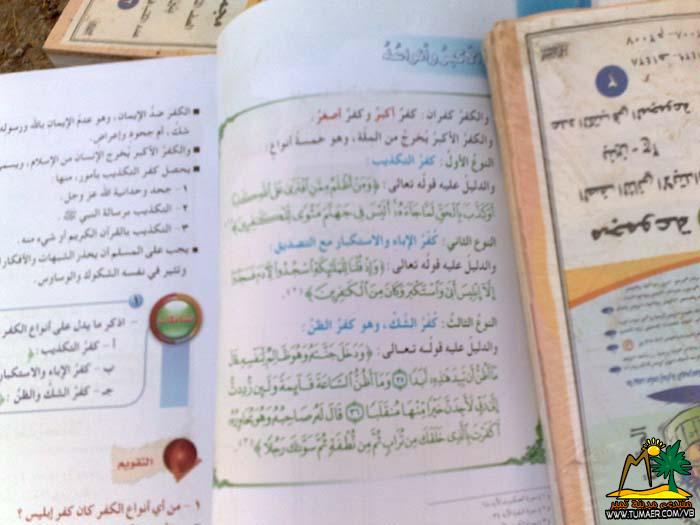 الأكبر وأنواعه
والكفر كفران : كفر أكبر وكفر أصغر .
والكفر الأكبر يُخرج من الملّة، وهو خمسة أنواع:
النوع الأول: كفر التكذيب:
والدليل عليه قوله تعالى: ﴿وَمَنْ أَظْلَمُ مِمَّنِ افْتَرَىٰ عَلَى اللَّهِ كَذِبًا
أَوْ كَذَّبَ بِالْحَقِّ لَمَّا جَاءَهُ أَلَيْسَ فِي جَهَنَّمَ مَثْوًى لِلْكَافِرِينَ﴾
النوع الثاني: كفر الإباء والاستكبار مع التصديق:
والدليل عليه قوله تعالى: ﴿وَإِذْ قُلْنَا لِلْمَلَائِكَةِ اسْجُدُوا لِآدَمَ فَسَجَدُوا
إِلَّا إِبْلِيسَ أَبَىٰ وَاسْتَكْبَرَ وَكَانَ مِنَ الْكَافِرِينَ﴾
النوع الثالث: كفر الشك، وهو كفر الظن:
والدليل عليه قوله تعالى: ﴿وَدَخَلَ جَنَّتَهُ وَهُوَ ظَالِمٌ لِنَفْسِهِ قَالَ
مَا أَظُنُّ أَنْ تَبِيدَ هَٰذِهِ أَبَدًا ﴿٣٥﴾ وَمَا أَظُنُّ السَّاعَةَ قَائِمَةً وَلَئِنْ رُدِدْتُ
إِلَىٰ رَبِّي لَأَجِدَنَّ خَيْرًا مِنْهَا مُنْقَلَبًا ﴿٣٦﴾ قَالَ لَهُ صَاحِبُهُ وَهُوَ يُحَاوِرُهُ
أَكَفَرْتَ بِالَّذِي خَلَقَكَ مِنْ تُرَابٍ ثُمَّ مِنْ نُطْفَةٍ ثُمَّ سَوَّاكَ رَجُلًا﴾
■ الكفر ضدّ الإيمان، وهو عدم الإيمان بالله ورسوله
شك، أم جحود وإعراض.
■ والكفر الأكبر يُخرج الإنسان من الإسلام، ويسمى
■ يحصل كفر التكذيب بأمور، منها:
١- جحد وحدانية الله عز وجل.
٢- التكذيب برسالة النبي ﷺ.
٣- التكذيب بالقرآن الكريم أو شيء منه.
■ يجب على المسلم أن يحذر الشبهات والأفكار
وتثير في نفسه الشكوك والوساوس.
نشاط
١
- اذكر ما يدل على أنواع الكفر
أ- كفر التكذيب: ﴿
ب- كفر الإباء والاستكبار
جـ- كفر الشك والظن: ﴿
التقويم
١ - من أي أنواع الكفر كان كفر إبليس ؟
مجموعة
الصف الثاني
عدد الكتب في المجموعة
٢
٢٠٠٧ - ٢٠٠٨م
منتدى مدينة تمير
WWW.TUMAER.COM/VB